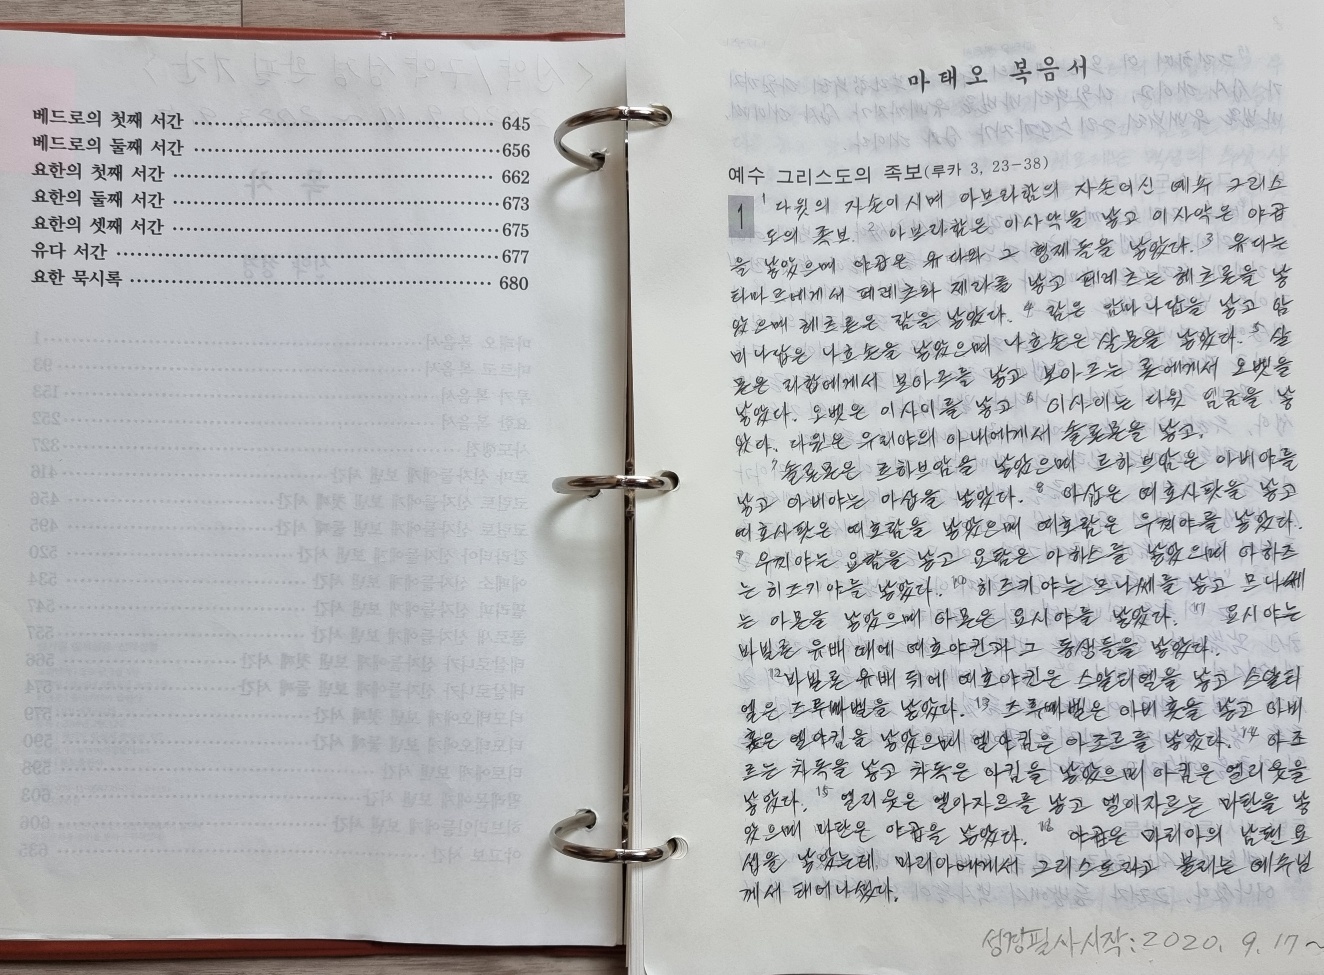 베드로의 첫째 서간 645
베드로의 둘째 서간 656
요한의 첫째 서간 662
요한의 둘째 서간 673
요한의 셋째 서간 675
유다 서간 677
요한 묵시록 680
마태오 복음서
예수 그리스도의 족보(루카 3, 23-38)
1 1 다윗의 자손이시며 아브라함의 자손이신 예수 그리스
도의 족보. 2 아브라함은 이사악을 낳고 이사악은 야곱
을 낳았으며 야곱은 유다와 그 형제들을 낳았다. 3 유다는
타마르에게서 페레츠와 제라를 낳고 페레츠는 헤츠론을 낳
았으며 헤츠론은 람을 낳았다. 4 람은 암미나답을 낳고 암
미나답은 나흐손을 낳았으며 나흐손은 살몬을 낳았다. 5 살
몬은 라합에게서 보아즈를 낳고 보아즈는 룻에게서 오벳을
낳았다. 오벳은 이사이를 낳고 6 이사이는 다윗 임금을 낳
았다. 다윗은 우리야의 아내에게서 솔로몬을 낳고,
7 솔로몬은 르하브암을 낳았으며 르하브암은 아비야를
낳고 아비야는 아삽을 낳았다. 8 아삽은 여호사팟을 낳고
여호사팟은 여호람을 낳았으며 여호람은 우찌야를 낳았다.
9 우찌야는 요탐을 낳고 요탐은 아하즈를 낳았으며 아하즈
는 히즈키야를 낳았다. 10 히즈키야는 므나쎄를 낳고 므나쎄
는 아몬을 낳았으며 아몬은 요시야를 낳았다. 11 요시야는
바빌론 유배 때에 여호야킨과 그 동생들을 낳았다.
12 바빌론 유배 뒤에 여호야킨은 스알티엘을 낳고 스알티
엘은 즈루빠벨을 낳았다. 13 즈루빠벨은 아비훗을 낳고 아비
훗은 엘야킴을 낳았으며 엘야킴은 아조르를 낳았다. 14 아조
르는 차독을 낳고 차독은 아킴을 낳았으며 아킴은 엘리웃을
낳았다. 15 엘리웃은 엘아자르를 낳고 엘아자르는 마탄을 낳
았으며 마탄은 야곱을 낳았다. 16 야곱은 마리아의 남편 요
셉을 낳았는데, 마리아에게서 그리스도라고 불리는 예수님
께서 태어나셨다.
성경필사시작: 2020. 9. 17 ~